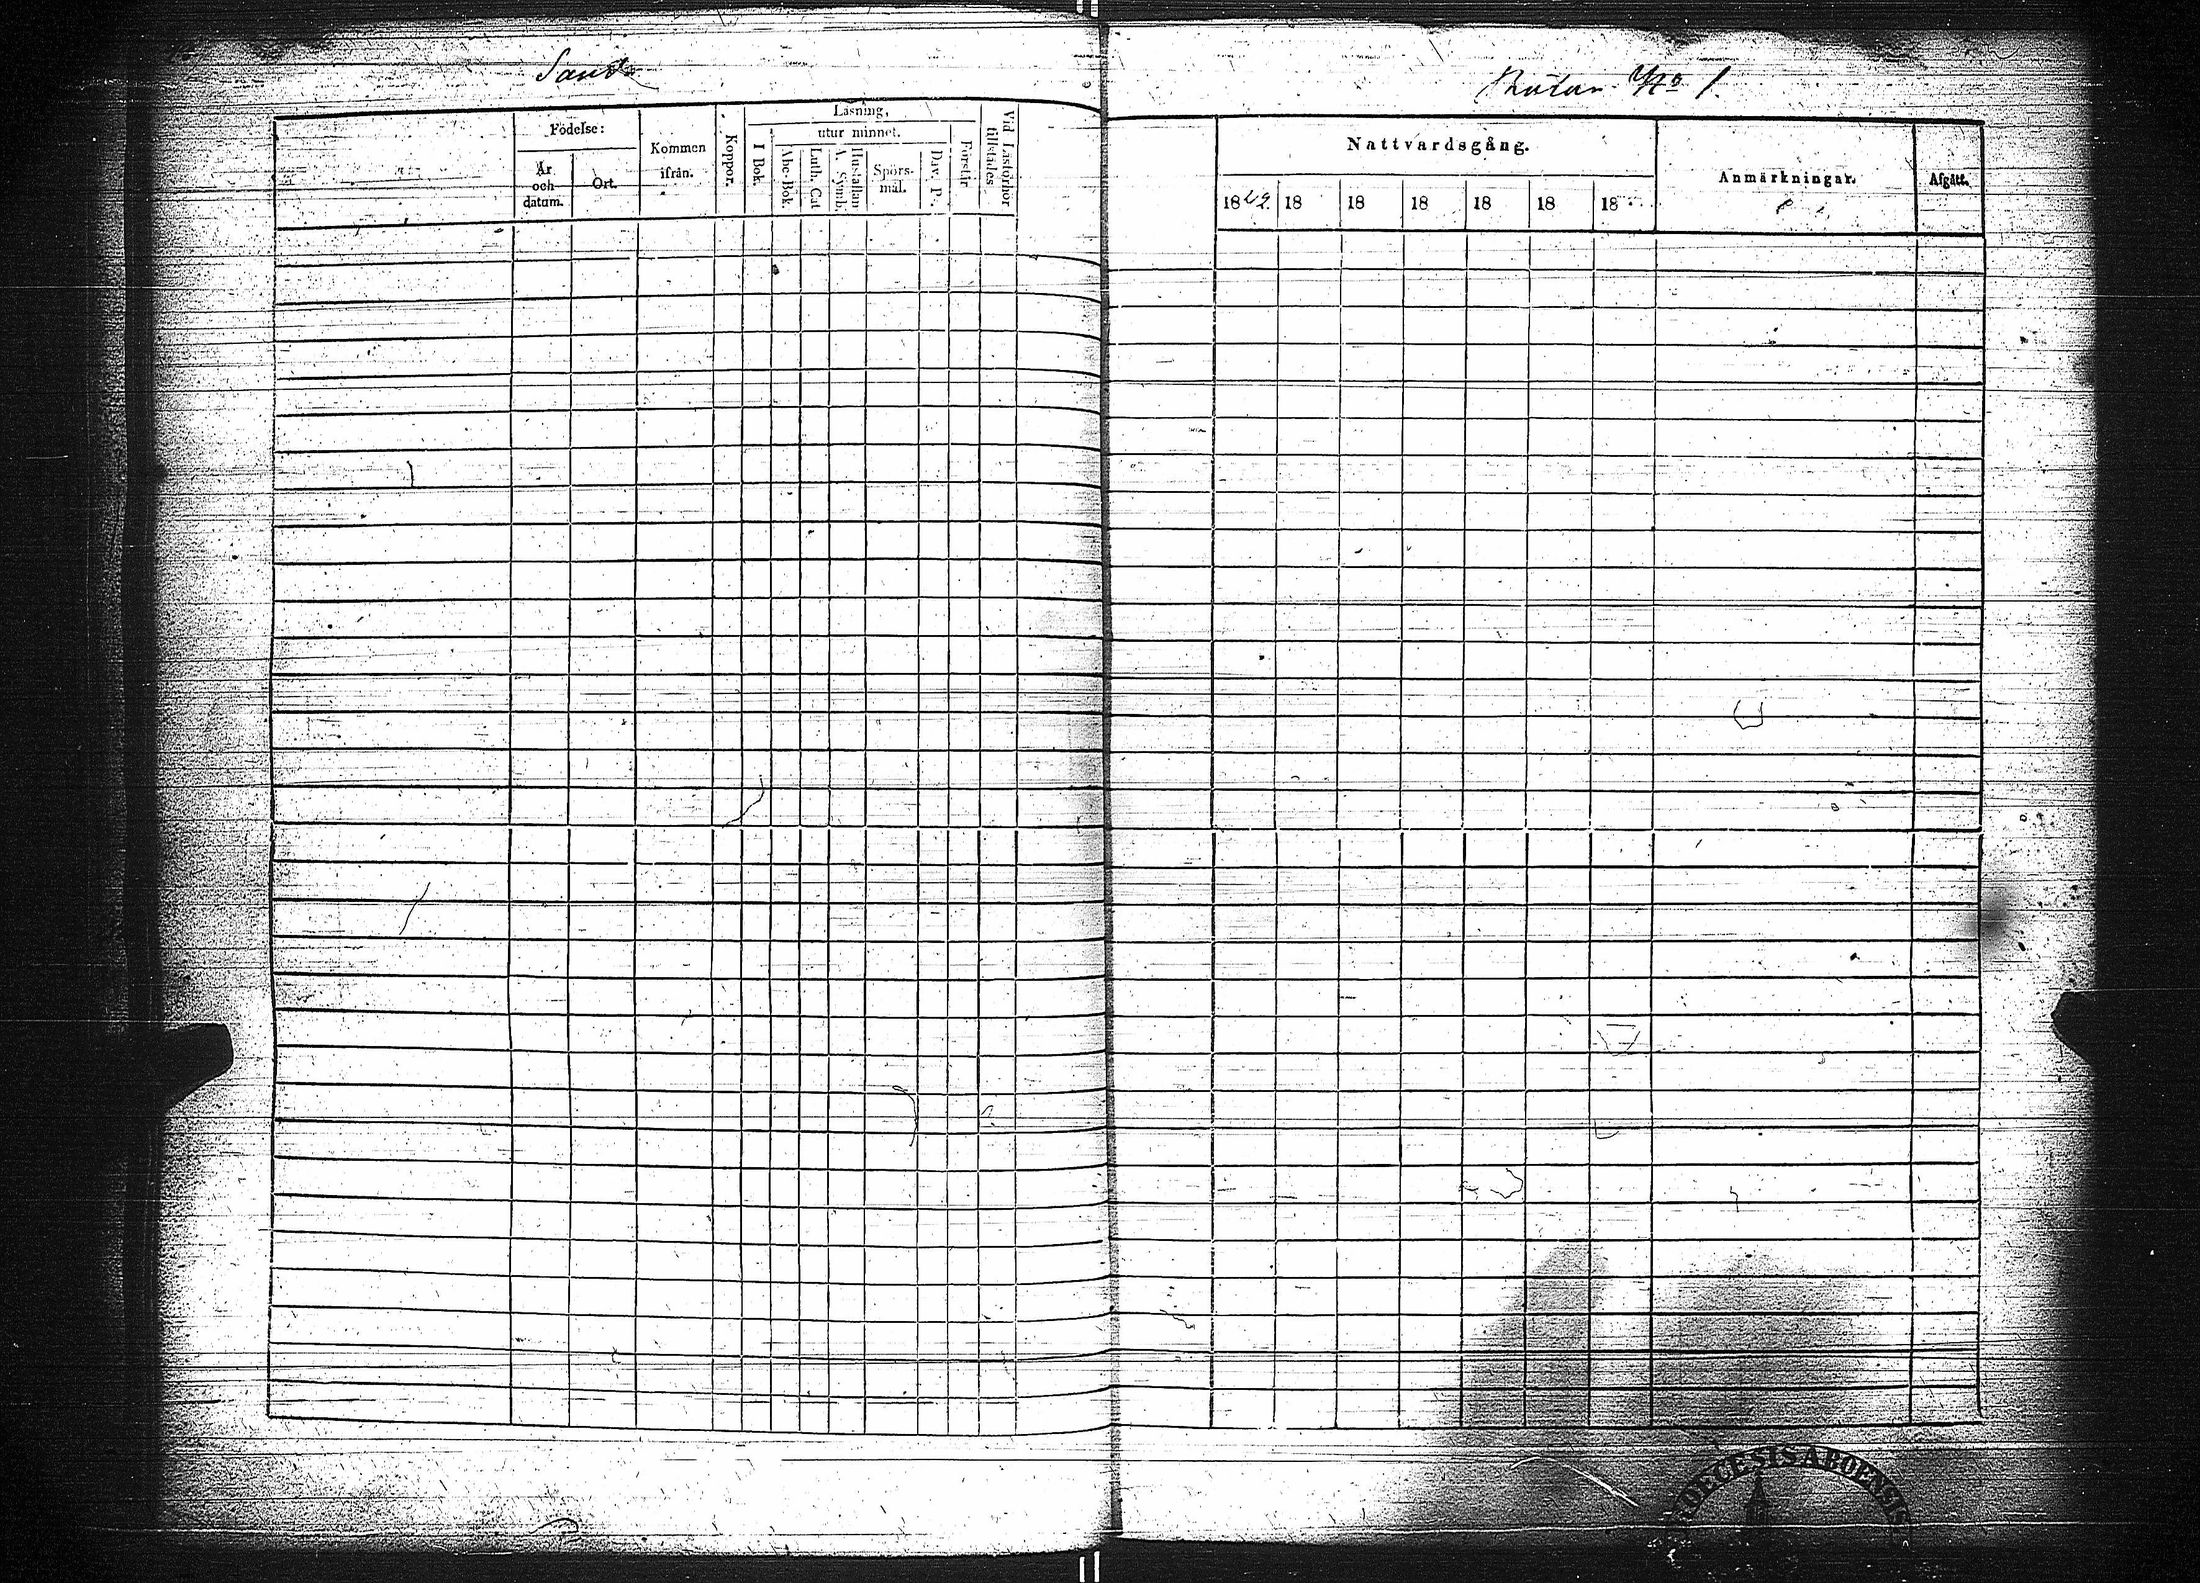 Sand
Rutan No 1.
Födelse:
År och datum.
Ort.
Kommen ifrån.
Koppor.
Läsning,
I Bok.
utur minnet.
Abc-Bok.
Luth. Cat
Hustaflan A. Symb.
Spörs-mål.
Dav. Ps.
Förstår
Vid Läsförhör tillstädes
Nattvardsgång.
1842. 18 18 18 18 18 18
Anmärkningar.
Afgått.
DIOECESIS ABOENSIS